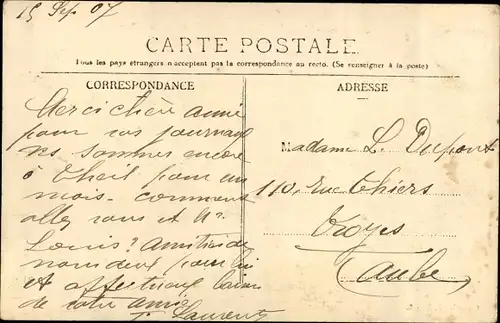 15 Sep 07
CARTE POSTALE
Tous les pays étrangers n'acceptent pas la correspondance au recto. (Se renseigner à la poste)
CORRESPONDANCE
Merci chère amie
pour vos journaux
ns sommes encore
à Theil pour un
mois. comment
allez vous et Mr
Louis? amitiés de
nous deux pour lui
et affectueux baisers
de votre amie
Laurent
ADRESSE
Madame L. Dupont
110, rue Thiers
Troyes
Aube